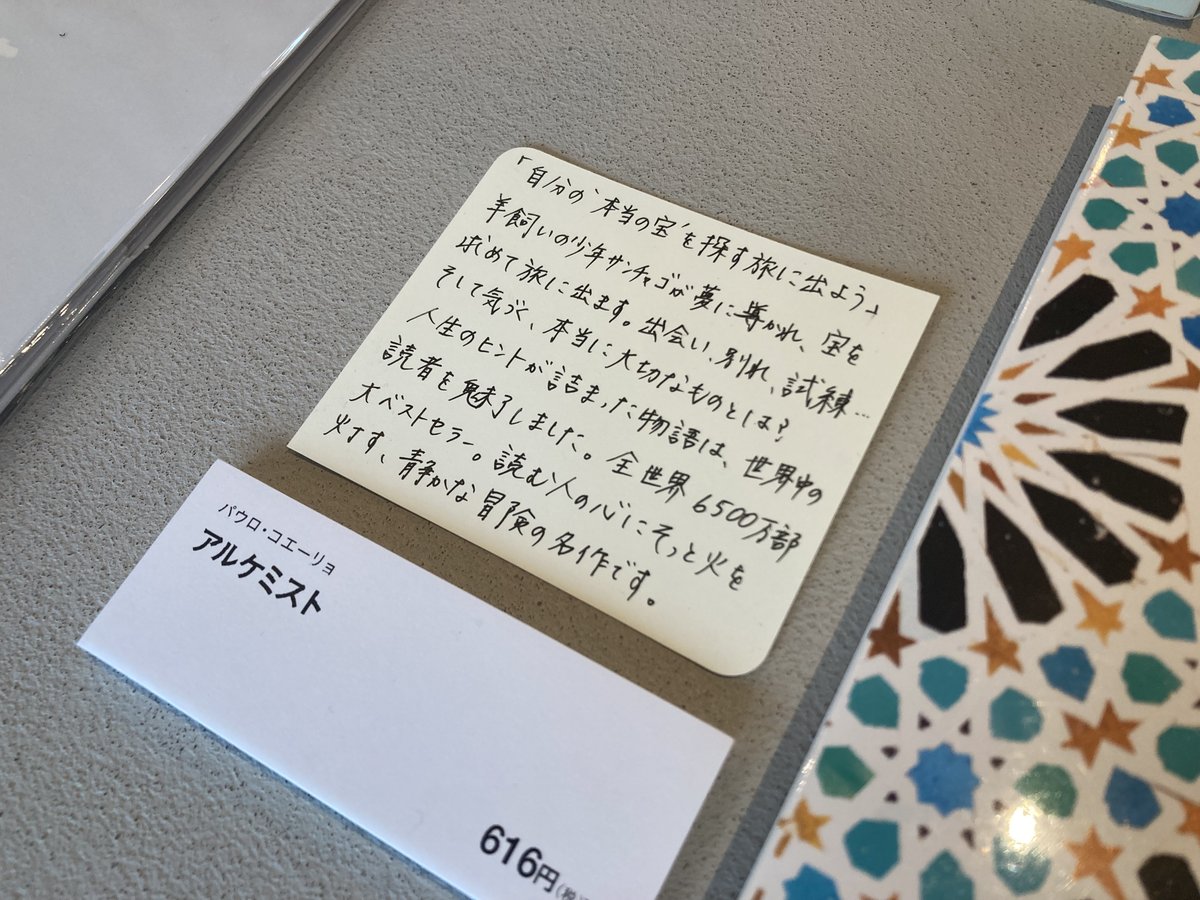 「自分の“本当の宝”を探す旅に出よう」
羊飼いの少年サンチャゴが夢に導かれ、宝を
求めて旅に出ます。出会い、別れ、試練…
そして気づく、本当に大切なものとは?
人生のヒントが詰まった物語は、世界中の
読者を魅了しました。全世界6500万部
大ベストセラー。読む人の心にそっと火を
灯す、静かな冒険の名作です。
パウロ・コエーリョ
アルケミスト
616円